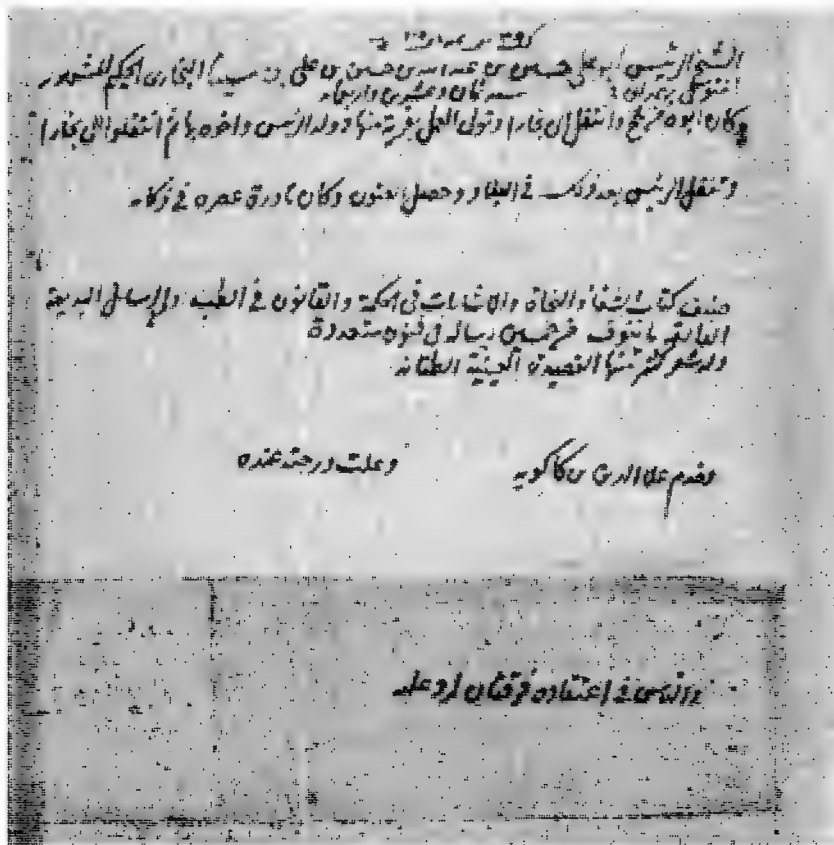 الشيخ الرئيس ابو على حسين بن عبد الله بن حسن بن على بن سينا البخارى الحكيم المشهور
المتوفى بهمدان سنه ثمان وعشرين واربعمائه
وكان ابوه من بلخ وانتقل الى بخارا وتولى العمل بقرية منها وولد الرئيس واخوه بها ثم انتقلوا الى بخارا
وتنقل الرئيس بعد ذلك فى البلاد وحصل الفنون وكان نادرة عصره فى ذكائه
صنف كتاب الشفا والنجاة والاشارات فى الحكمة والقانون فى الطب والرسائل البديعة
ما يتوف رسالة فى فنون متعددة
وله شعر كثير منها القصيدة العينية
علا الدين بن كاكويه وعلت درجته عنده
والناس فى اعتقاده فرقتان له وعليه